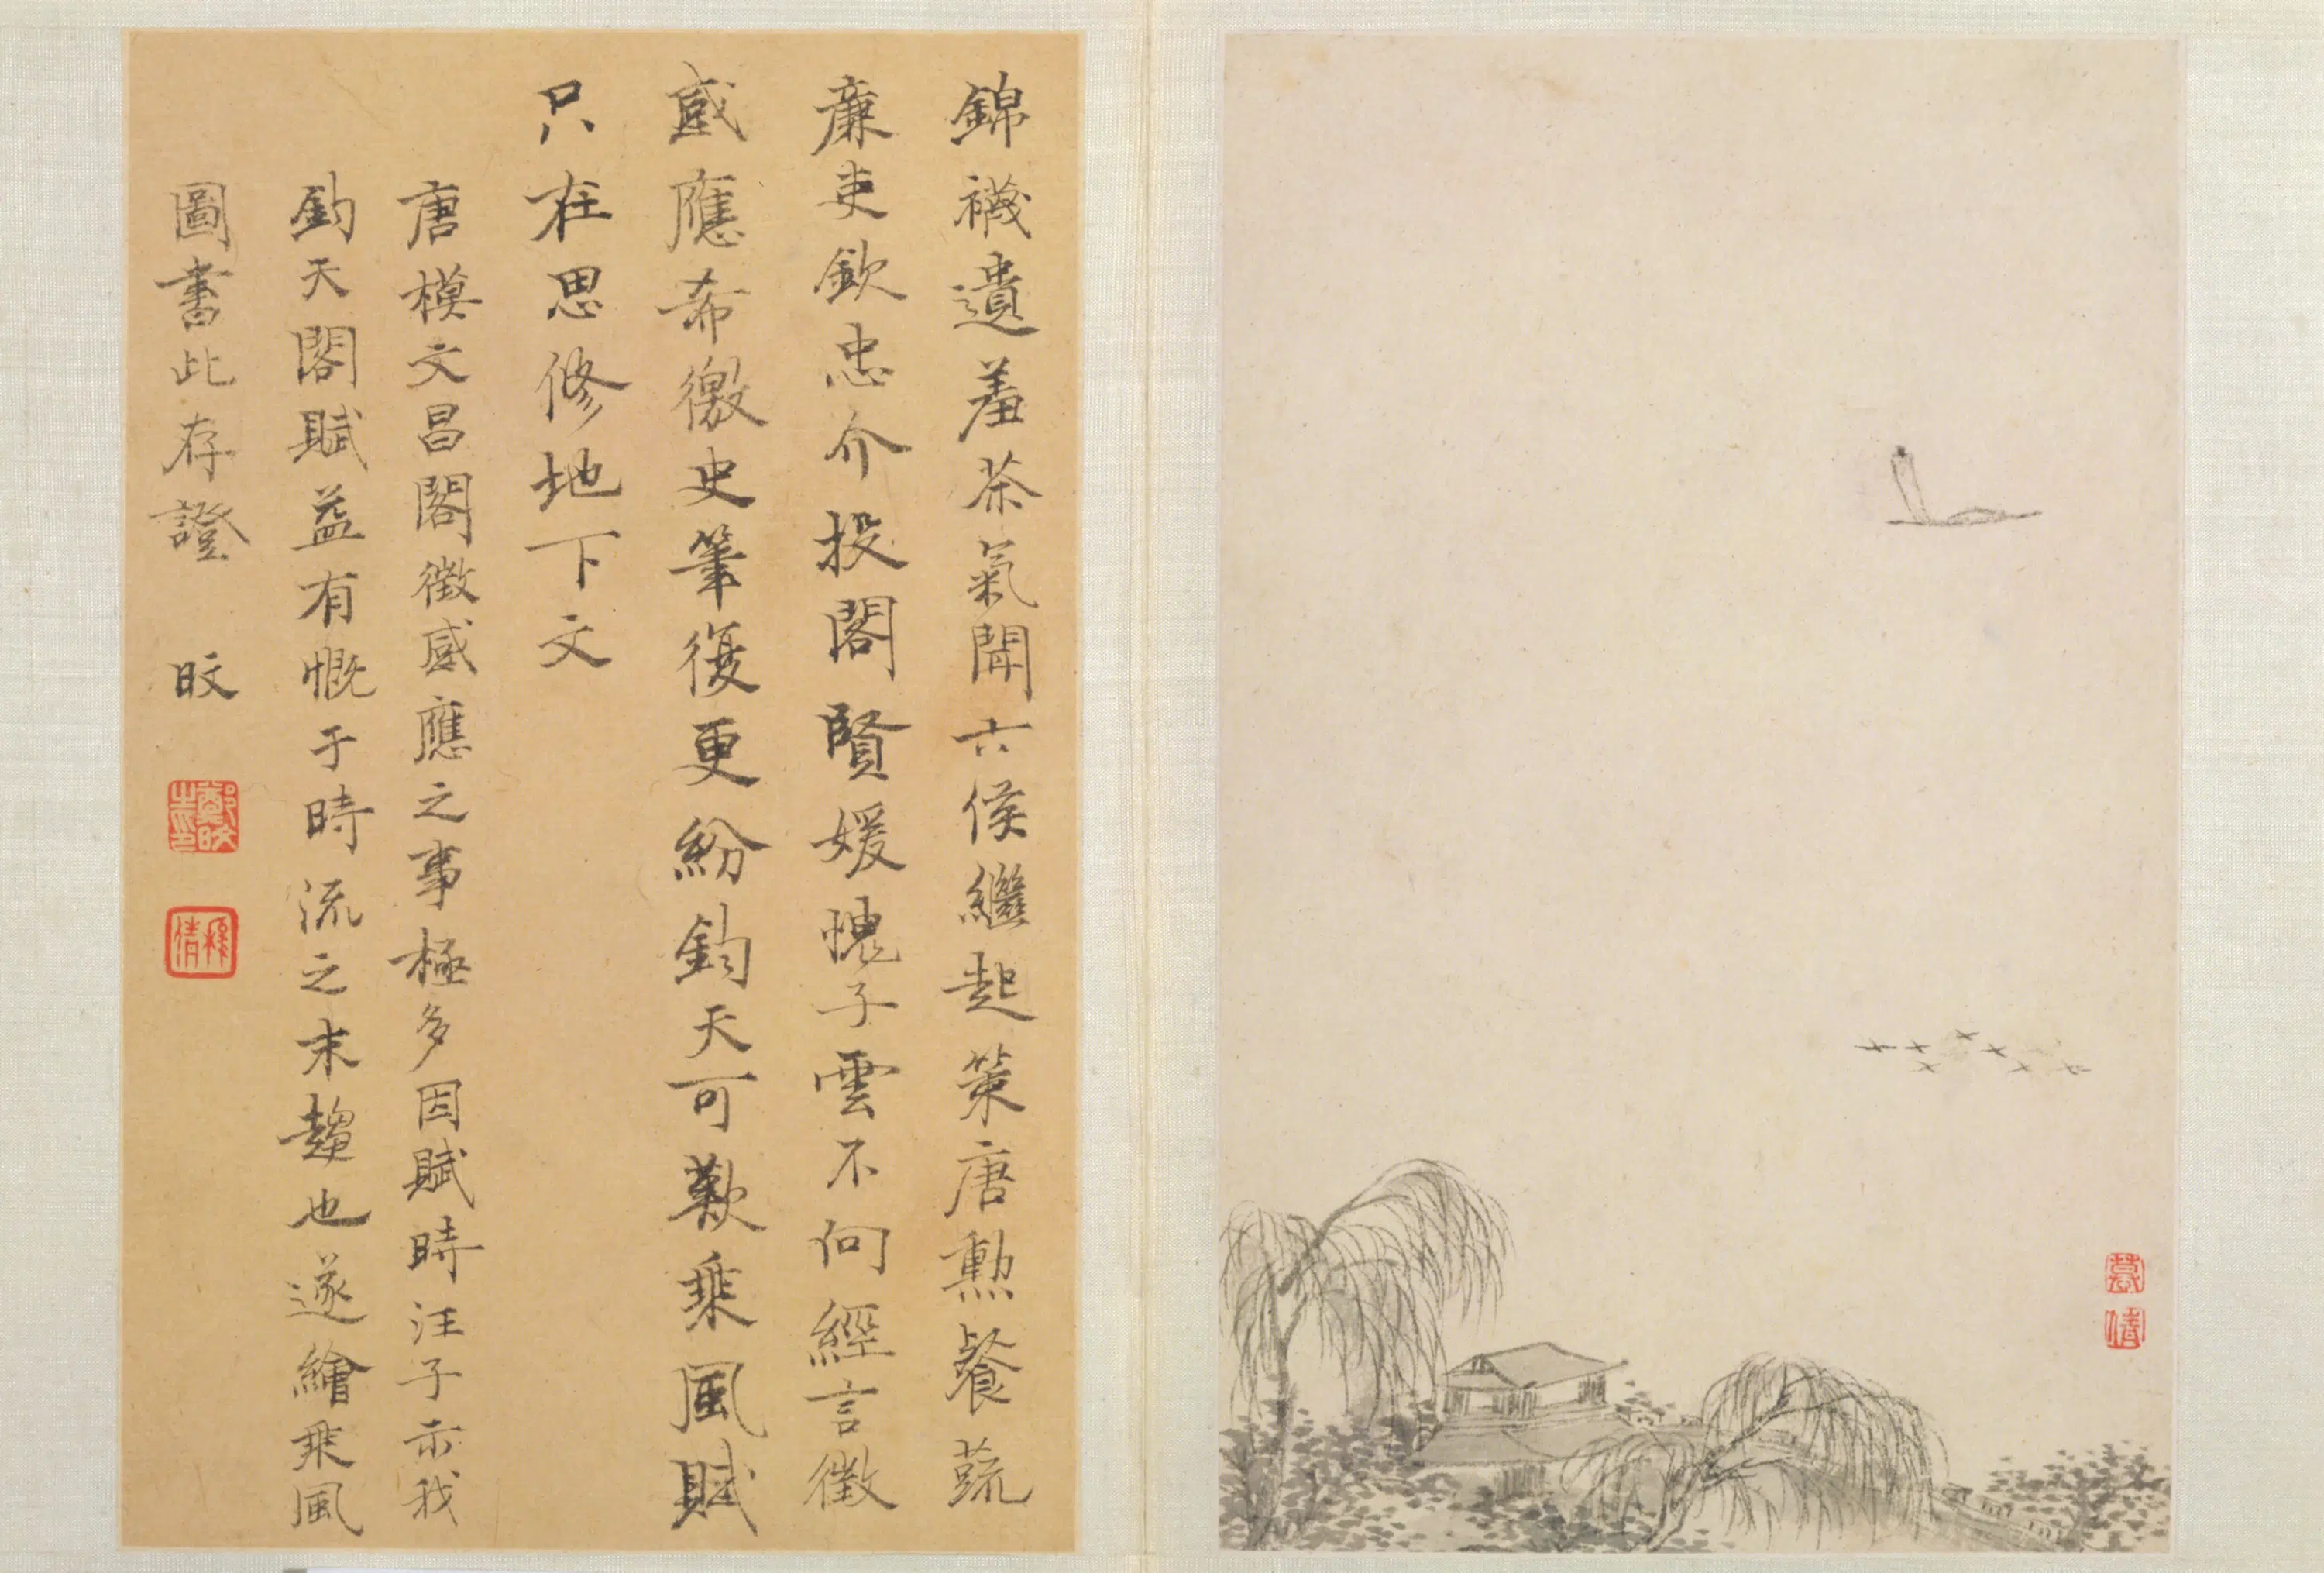 錦襪遺羞茶氣聞六侯繼起策唐勲餐蔬
廉吏欽忠介投閣賢媛愧子雲不向經言徵
感應希徼史筆復更紛鈞天可歎乗風賦
只在思修地下文
唐模文昌閣徵感應之事極多因賦時汪子示我
鈞天閣賦益有慨于時流之末趨也遂繪乗風
圖書此存證 旼
鄭旼之印
穆倩
慕倩